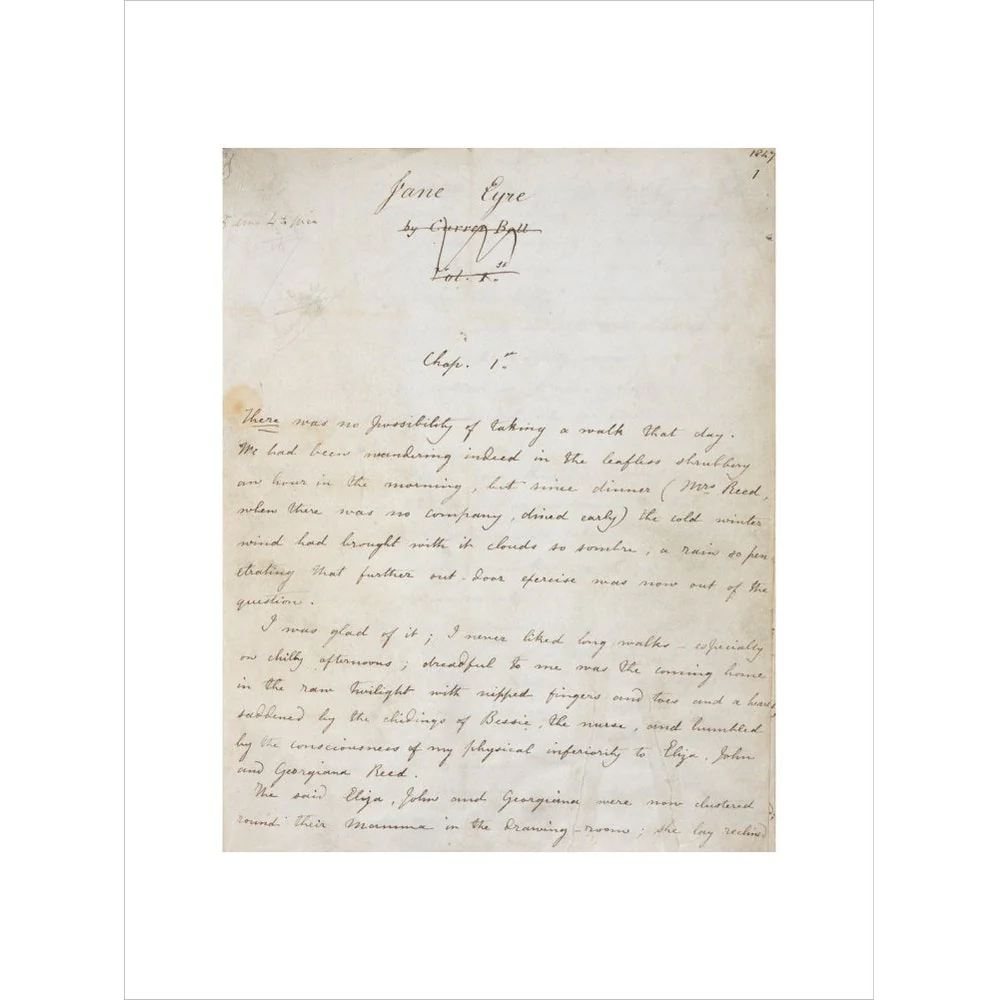 1847
1
Jane Eyre
by Currer Bell
Vol. 1.st
Chap. 1.st
There was no possibility of taking a walk that day.
We had been wandering indeed in the leafless shrubbery
an hour in the morning, but since dinner (Mrs Reed,
when there was no company, dined early) the cold winter
wind had brought with it clouds so sombre, a rain so pen-
etrating that further out-door exercise was now out of the
question.
I was glad of it; I never liked long walks - especially
on chilly afternoons; dreadful to me was the coming home
in the raw twilight with nipped fingers and toes and a heart
saddened by the chidings of Bessie, the nurse, and humbled
by the consciousness of my physical inferiority to Eliza, John
and Georgiana Reed.
The said Eliza, John and Georgiana were now clustered
round their Mamma in the drawing-room; she lay reclined